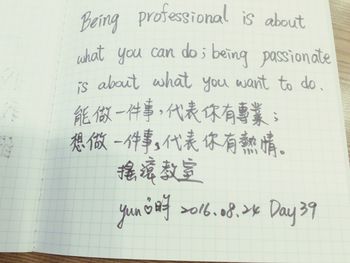 Being professional is about
what you can do; being passionate
is about what you want to do.
能做一件事，代表你有專業；
想做一件事，代表你有熱情。
搖滾教室
yun 時 2016.08.24 Day 39